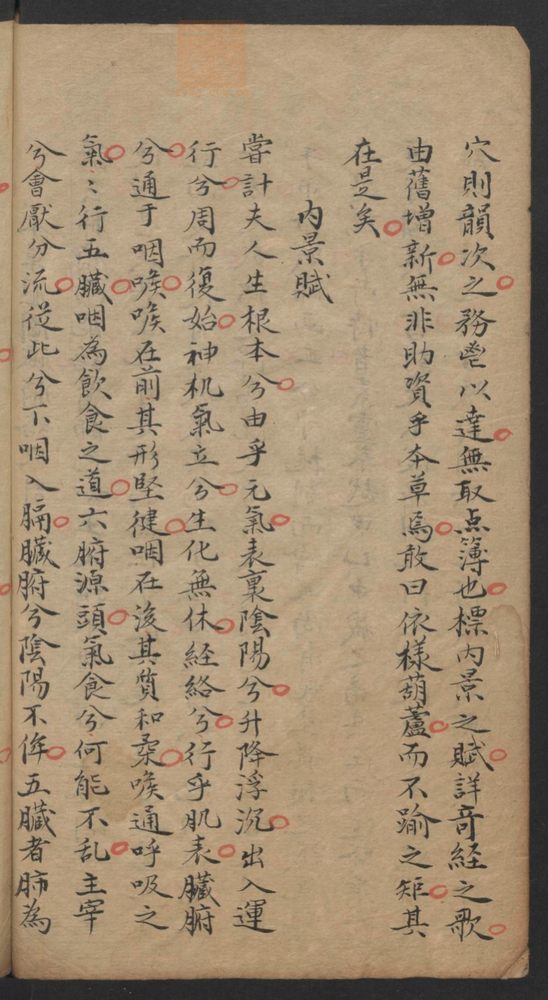 穴則韻次之務壱以達無取点簿也標内景之賦詳奇経之歌
由舊增新無非助資乎本草焉敢曰依樣葫蘆而不踰之矩其
在是矣
内景賦
嘗計夫人生根本兮由乎元氣表裏陰陽兮升降浮沉出入運
行兮周而復始神机氣立兮生化無休経絡兮行乎肌表臟腑
兮通于咽喉喉在前其形堅健咽在後其質和柔喉通呼吸之
氣〻行五臟咽為飲食之道六腑源頭氣食兮何能不乱主宰
兮會厭分流從此兮下咽入膈臟腑兮陰陽不侔五臟者肺為